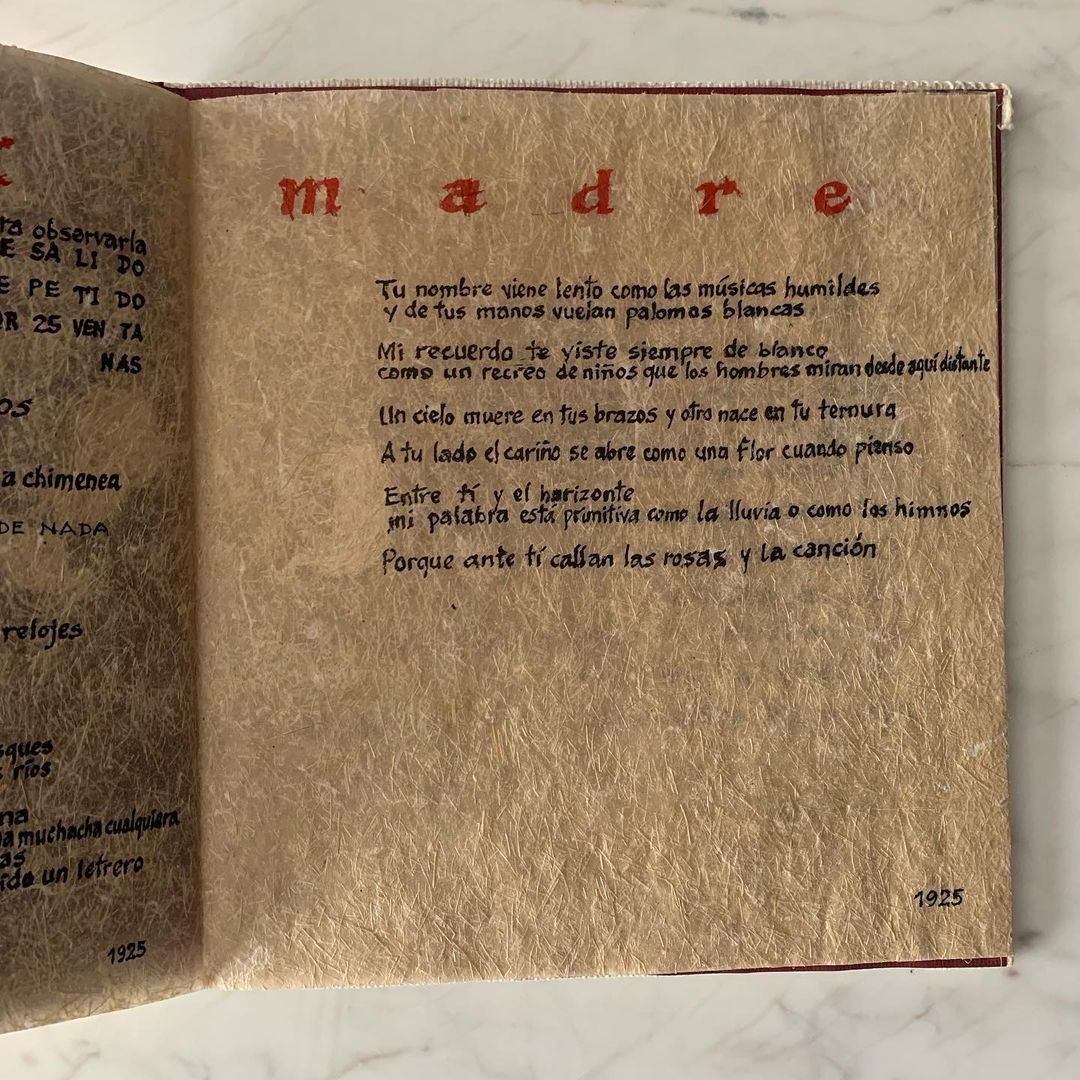 ta observarla
E SA LI DO
E PE TI DO
OR 25 VEN TA
NAS
os
a chimenea
DE NADA
relojes
sques
s ríos
na
a muchacha cualquiera
as
ido un letrero
1925
madre
Tu nombre viene lento como las músicas humildes
y de tus manos vuelan palomas blancas
Mi recuerdo te viste siempre de blanco
como un recreo de niños que los hombres miran desde aquí distante
Un cielo muere en tus brazos y otro nace en tu ternura
A tu lado el cariño se abre como una flor cuando pienso
Entre tí y el horizonte
mi palabra está primitiva como la lluvia o como los himnos
Porque ante tí callan las rosas y la canción
1925